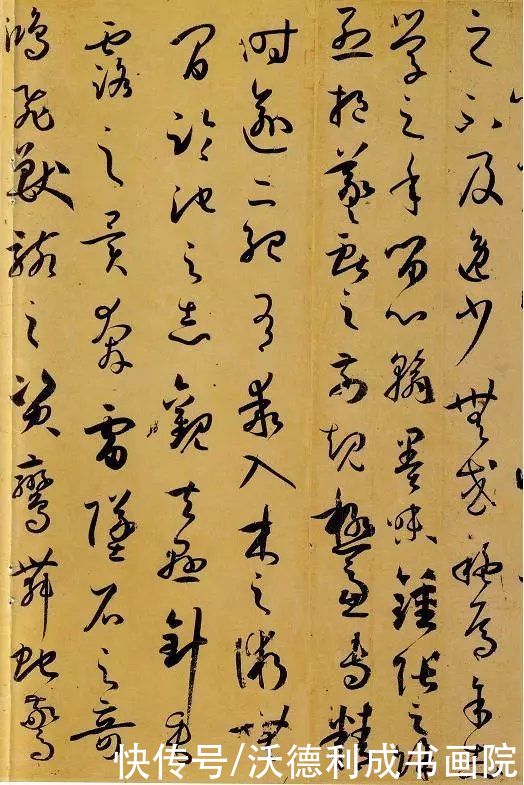 之不及逸少無或疑焉余志
學之年留心翰墨味鍾張之餘
烈挹羲獻之前規極慮專精
時逾二紀有乖入木之術無
間臨池之志觀夫懸針垂
露之異奔雷墜石之奇
鴻飛獸駭之資鸞舞蛇驚
快传号/沃德利成书画院